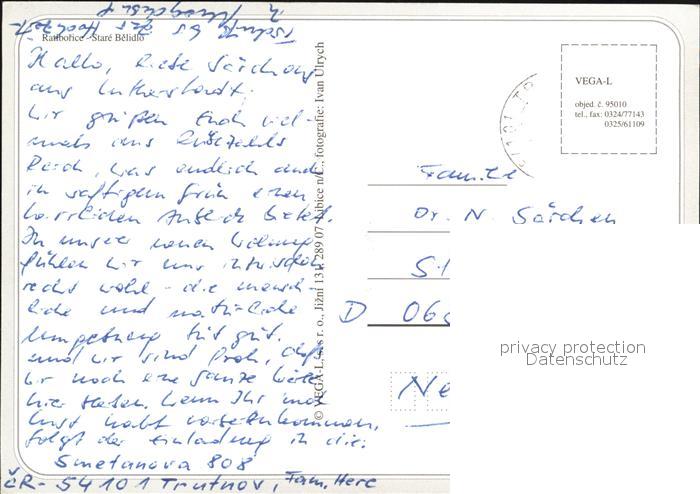 Ratibořice - Staré Bělidlo
Hallo, liebe Särchens
aus Lutherstadt,
wir grüßen Euch viel-
mals aus Rübezahls
Reich, was endlich auch
in saftigem Grün einen
herrlichen Anblick bietet.
In unserer neuen Wohnung
fühlen wir uns inzwischen
recht wohl - die mensch-
liche und natürliche
Umgebung tut gut.
und wir sind froh, daß
wir noch eine ganze Weile
hier stehen. Wenn Ihr mal
Lust habt vorbeizukommen,
folgt der Einladung in die:
Smetanova 808
ČR- 54101 Trutnov, Fam. Herc
© VEGA-L, s.s r.o., Jižní 131, 289 07 Libice n/C., fotografie: Ivan Ulrych
VEGA-L
objed. č. 95010
tel., fax: 0324/77143
0325/61109
Familie
Dr. N. Särchen
D 06
privacy protection
Datenschutz